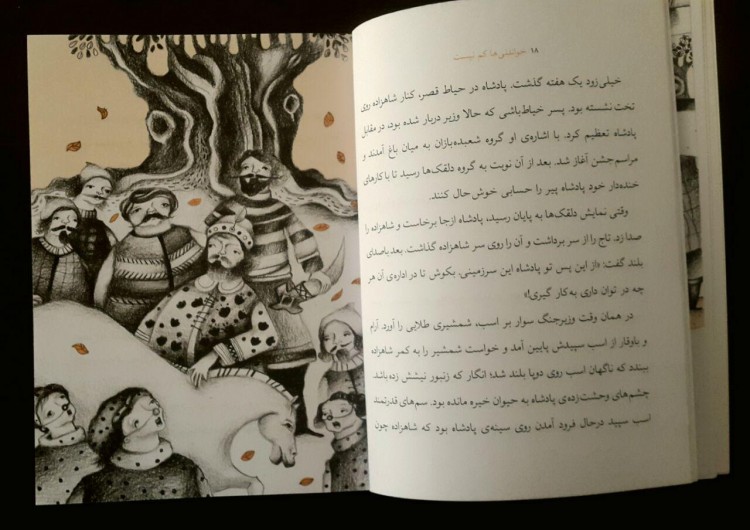 ۱۸ خواندنی‌ها کم نیست
خیلی زود یک هفته گذشت. پادشاه در حیاط قصر، کنار شاهزاده روی
تخت نشسته بود. پسر خیاط‌باشی که حالا وزیر دربار شده بود، در مقابل
پادشاه تعظیم کرد. با اشاره‌ی او گروه شعبده‌بازان به میان باغ آمدند و
مراسم جشن آغاز شد. بعد از آن نوبت به گروه دلقک‌ها رسید تا با کارهای
خنده‌دار خود پادشاه پیر را حسابی خوش‌حال کنند.
وقتی نمایش دلقک‌ها به پایان رسید، پادشاه ازجا برخاست و شاهزاده را
صدا زد. تاج را از سر برداشت و آن را روی سر شاهزاده گذاشت. بعد باصدای
بلند گفت: «از این پس تو پادشاه این سرزمینی. بکوش تا در اداره‌ی آن هر
چه در توان داری به‌کار گیری!»
در همان وقت وزیرجنگ سوار بر اسب، شمشیری طلایی را آورد. آرام
و باوقار از اسب سپیدش پایین آمد و خواست شمشیر را به کمر شاهزاده
ببندد که ناگهان اسب روی دوپا بلند شد؛ انگار که زنبور نیشش زده‌باشد.
چشم‌های وحشت‌زده‌ی پادشاه به حیوان خیره مانده بود. سم‌های قدرتمند
اسب سپید درحال فرود آمدن روی سینه‌ی پادشاه بود که شاهزاده چون